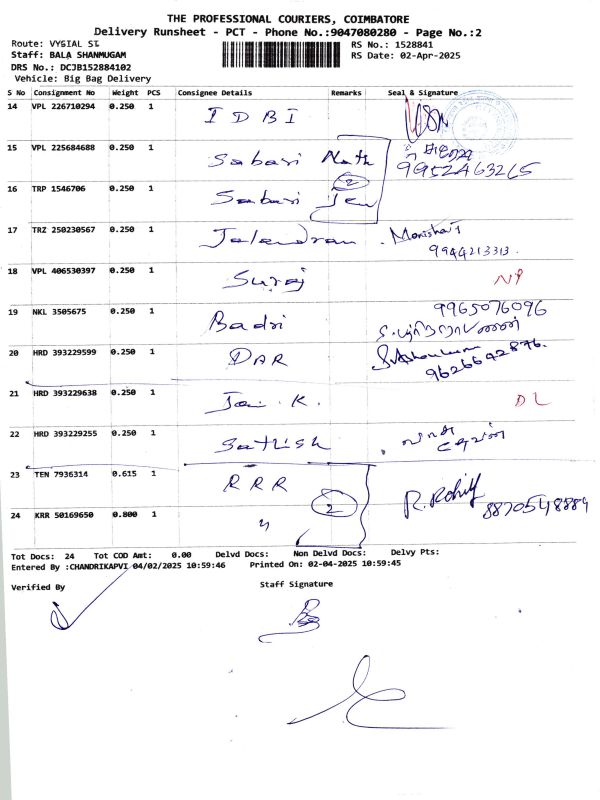 THE PROFESSIONAL COURIERS, COIMBATORE
Delivery Runsheet - PCT - Phone No.:9047080280 - Page No.:2
Route: VYSIAL ST
RS No.: 1528841
Staff: BALA SHANMUGAM
RS Date: 02-Apr-2025
DRS No.: DCJB152884102
Vehicle: Big Bag Delivery
S No Consignment No Weight PCS Consignee Details Remarks Seal & Signature
14 VPL 226710294 0.250 1 IDBI
15 VPL 225684688 0.250 1 Sabari Nath 9952463265
16 TRP 1546706 0.250 1 Sabari 2
17 TRZ 250230567 0.250 1 Jalendran Monisha T
9944213313
18 VPL 406530397 0.250 1 Suraj
19 NKL 3505675 0.250 1 Badri 9965076096
20 HRD 393229599 0.250 1 DAR
9626642876
21 HRD 393229638 0.250 1 Jai K. DL
22 HRD 393229255 0.250 1 Sathish
23 TEN 7936314 0.615 1 RRR 2 R. Rohit 8870548884
24 KRR 50169650 0.800 1 "
Tot Docs: 24 Tot COD Amt: 0.00 Delvd Docs: Non Delvd Docs: Delvy Pts:
Entered By :CHANDRIKAPVI 04/02/2025 10:59:46 Printed On: 02-04-2025 10:59:45
Verified By
Staff Signature